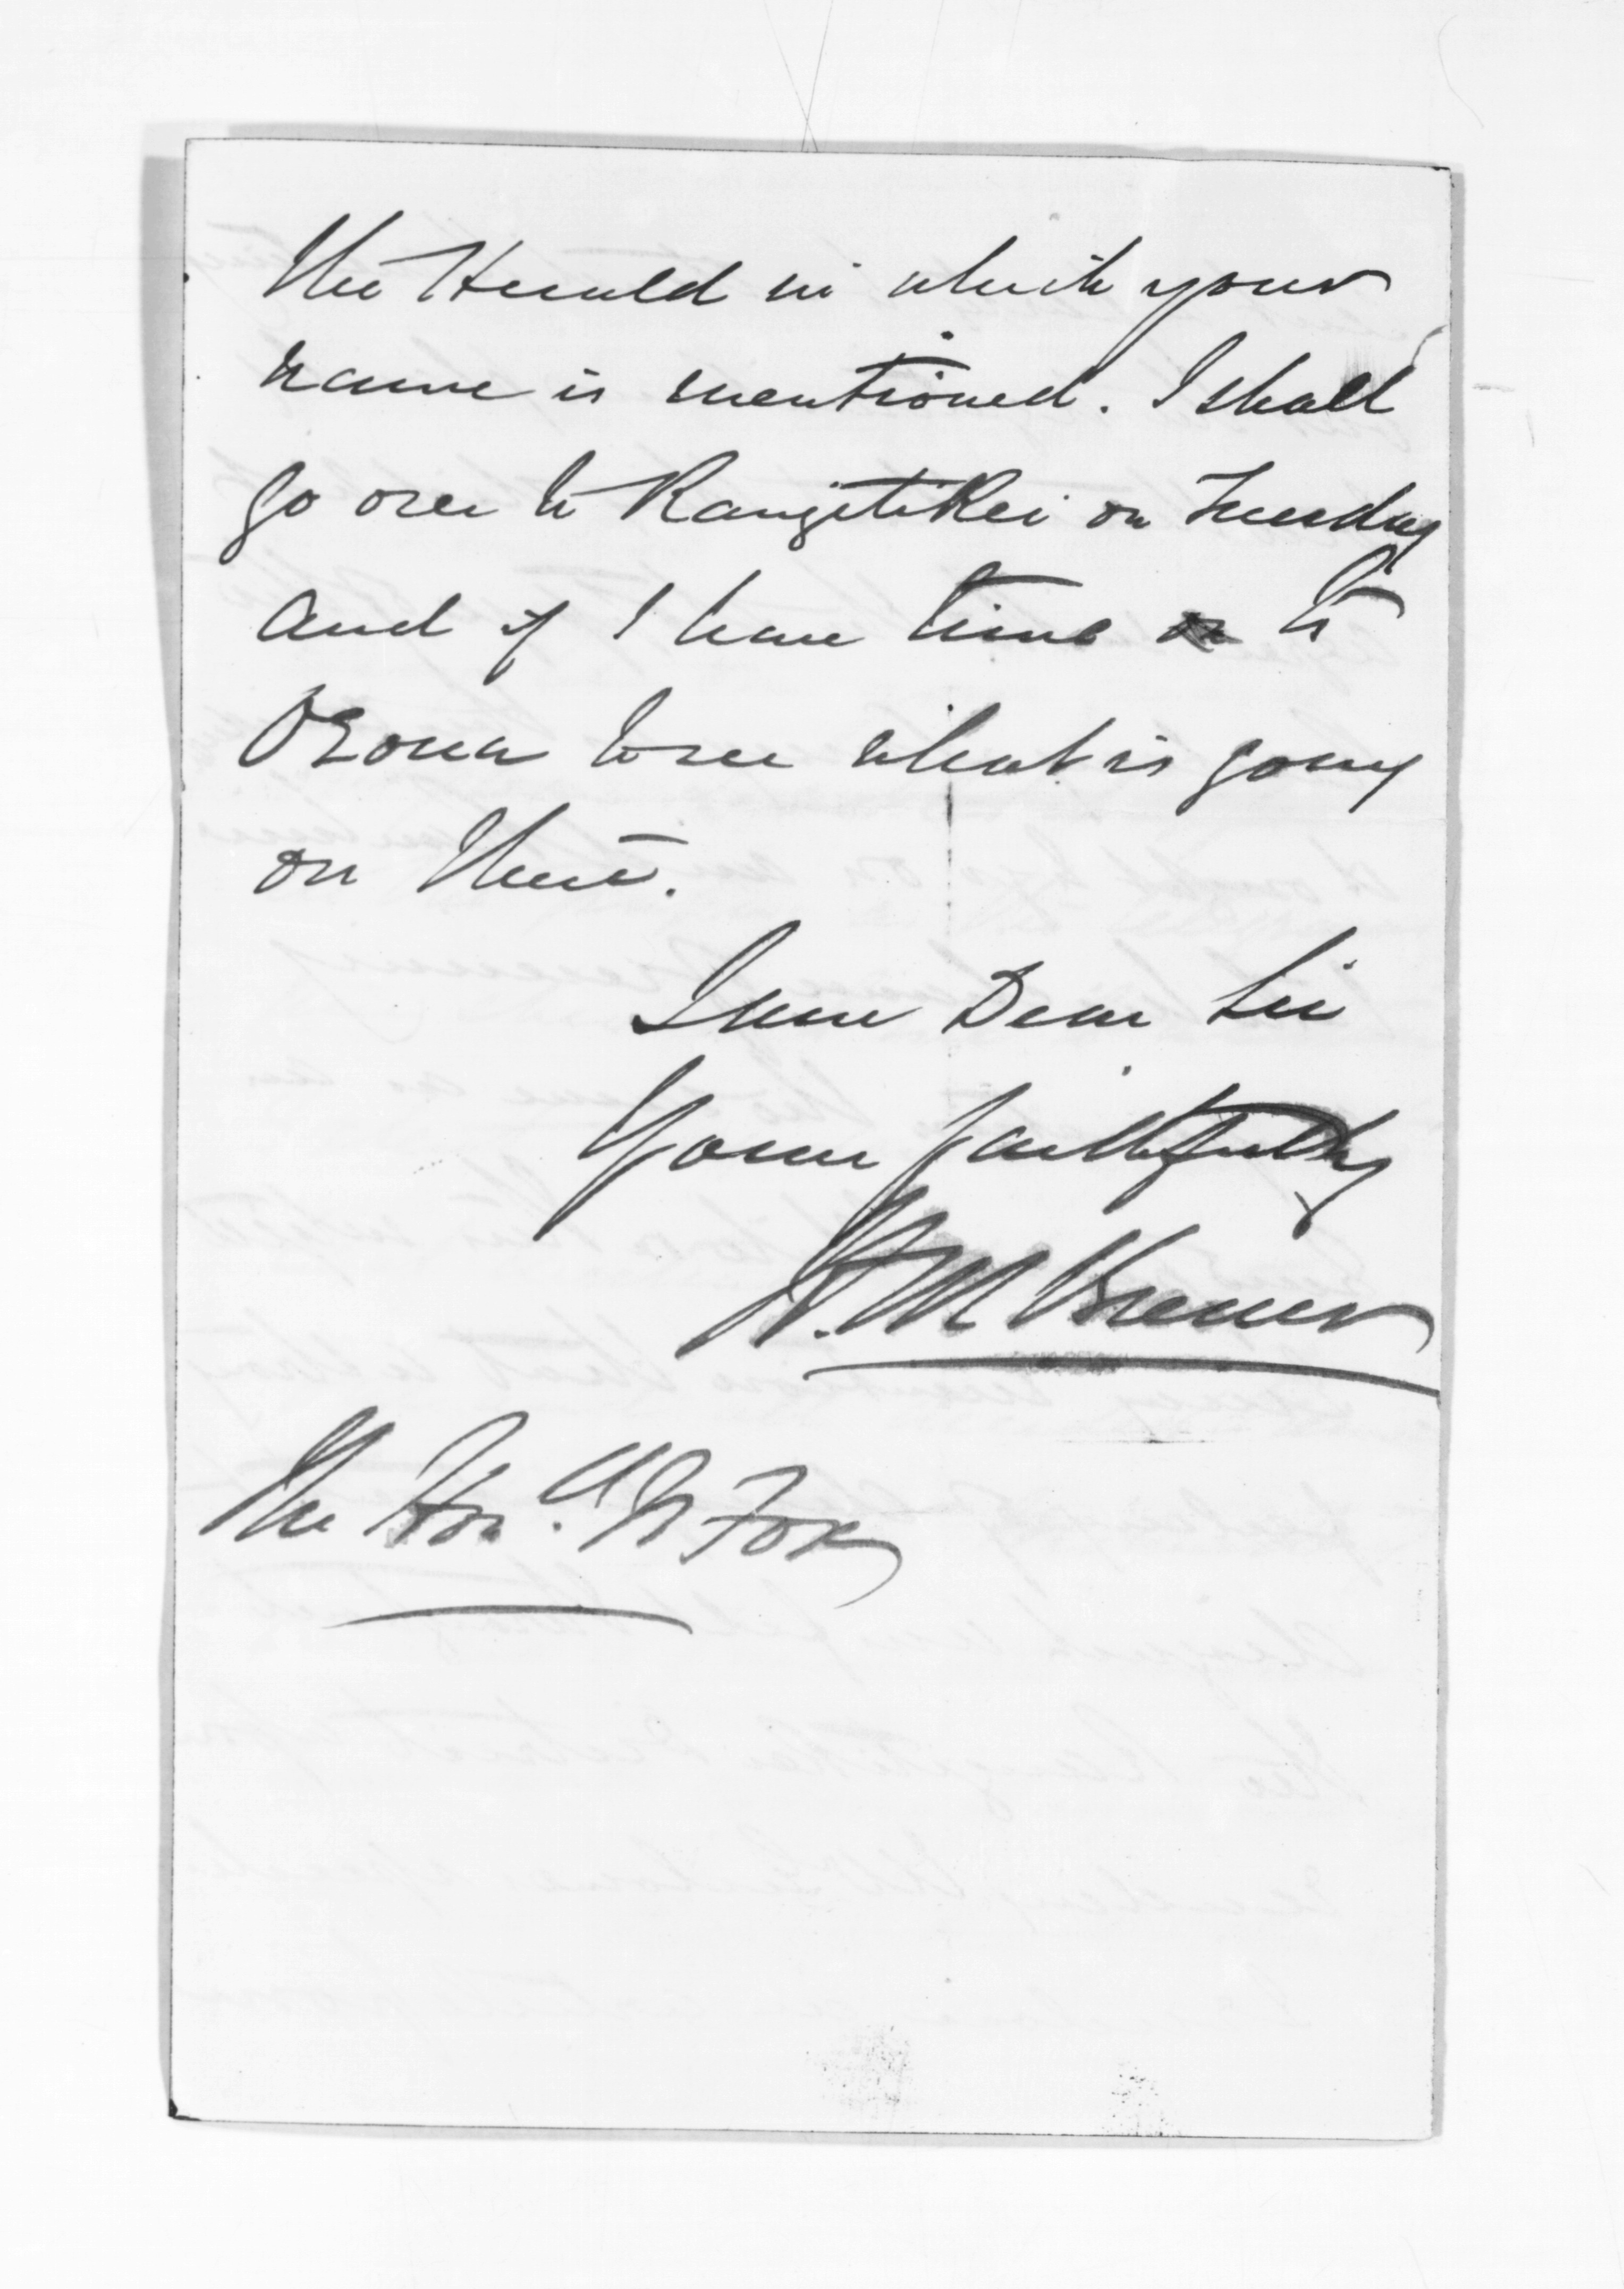 the Herald in which your
name is mentioned. I shall
go over to Rangitikei on Tuesday
and if I have time to
Oroua to see what is going
on there.
I am Dear Sir
Yours faithfully
The Hon. W Fox